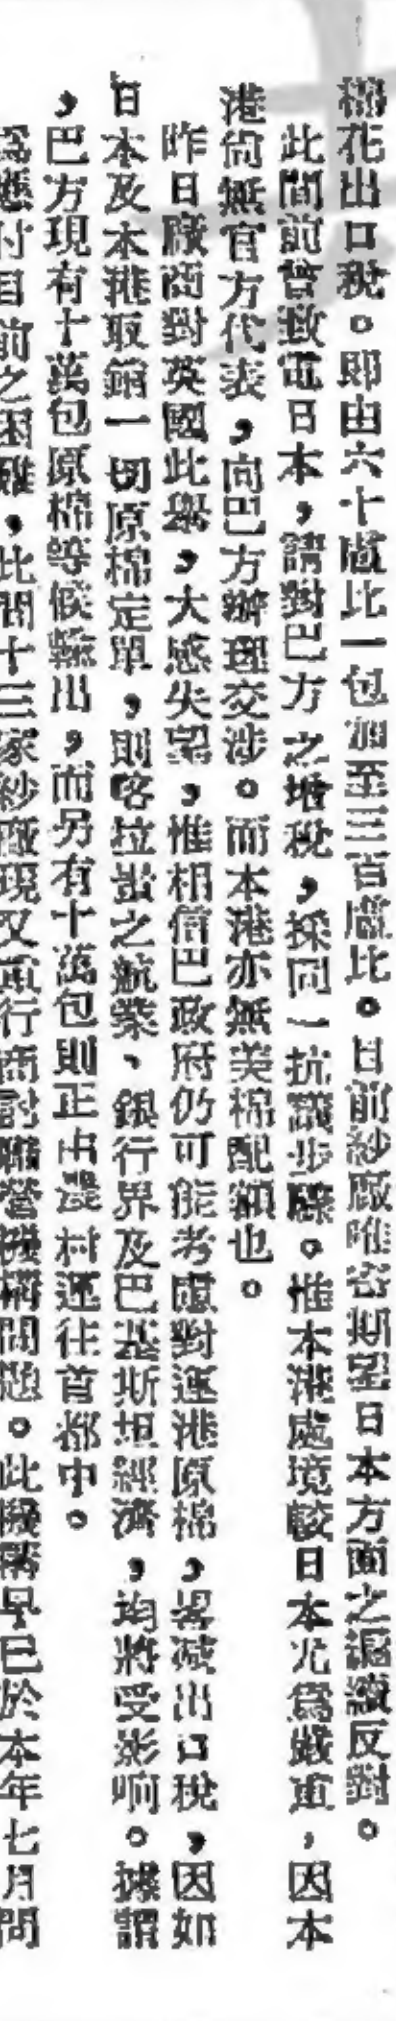 棉花出口稅。即由六十盧比一包加至三百盧比。目前紗廠唯容期望日本方面之繼續反對。
此間前曾致電日本，請對巴方之增稅，採同一抗議步驟。惟本港處境較日本尤爲嚴重，因本
港尙無官方代表，向巴方辦理交涉。而本港亦無美棉配額也。
昨日廠商對英國此舉，大感失望，惟相信巴政府仍可能考慮對運港原棉，畧減出口稅，因如
日本及本港取銷一切原棉定單，則喀拉蚩之航業、銀行界及巴基斯坦經濟，均將受影响。據謂
，巴方現有十萬包原棉等候輸出，而另有十萬包則正由農村運往首都中。
爲應付目前之困難，此間十三家紗廠現又重行商討聯營機構問題。此機構早已於本年七月間